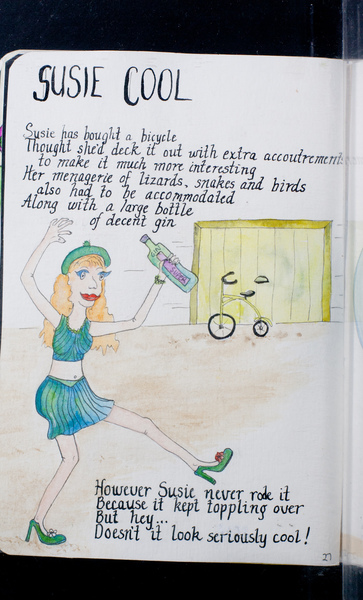 SUSIE COOL
Susie has bought a bicycle
Thought she'd deck it out with extra accoutrements
to make it much more interesting
Her menagerie of lizards, snakes and birds
also had to be accommodated
Along with a large bottle
of decent gin
However Susie never rode it
Because it kept toppling over
But hey...
Doesn't it look seriously cool!
27